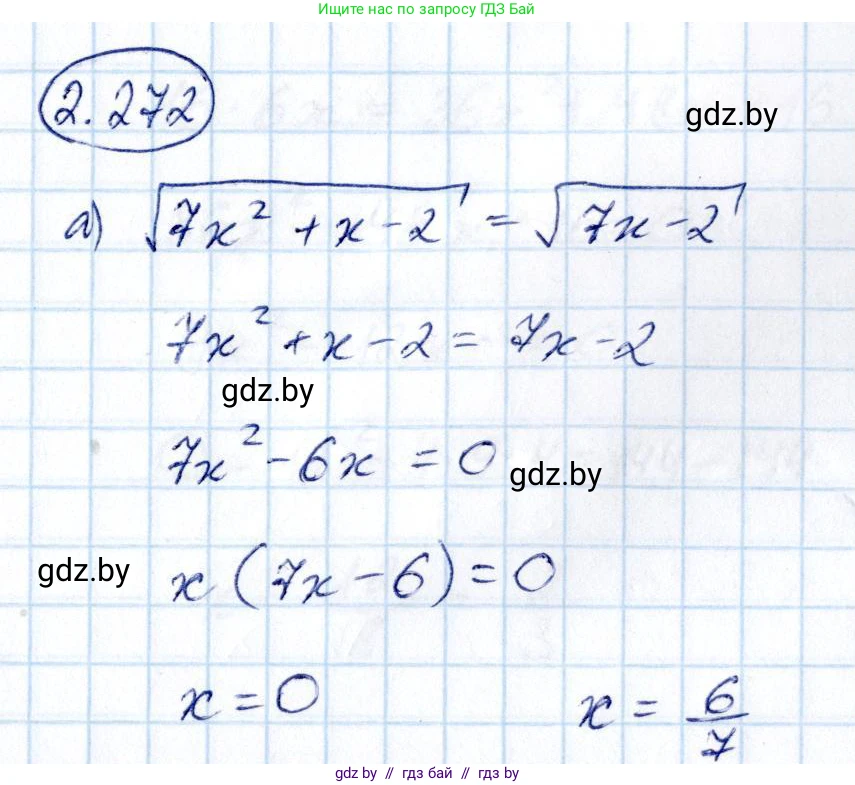 Ищите нас по запросу ГДЗ Бай
2.272
gdz.by
а) √(7x² + x - 2) = √(7x - 2)
7x² + x - 2 = 7x - 2
gdz.by
7x² - 6x = 0
gdz.by
gdz.by
x (7x - 6) = 0
x = 0 x = 6/7
gdz.by // гдз бай // гдз by